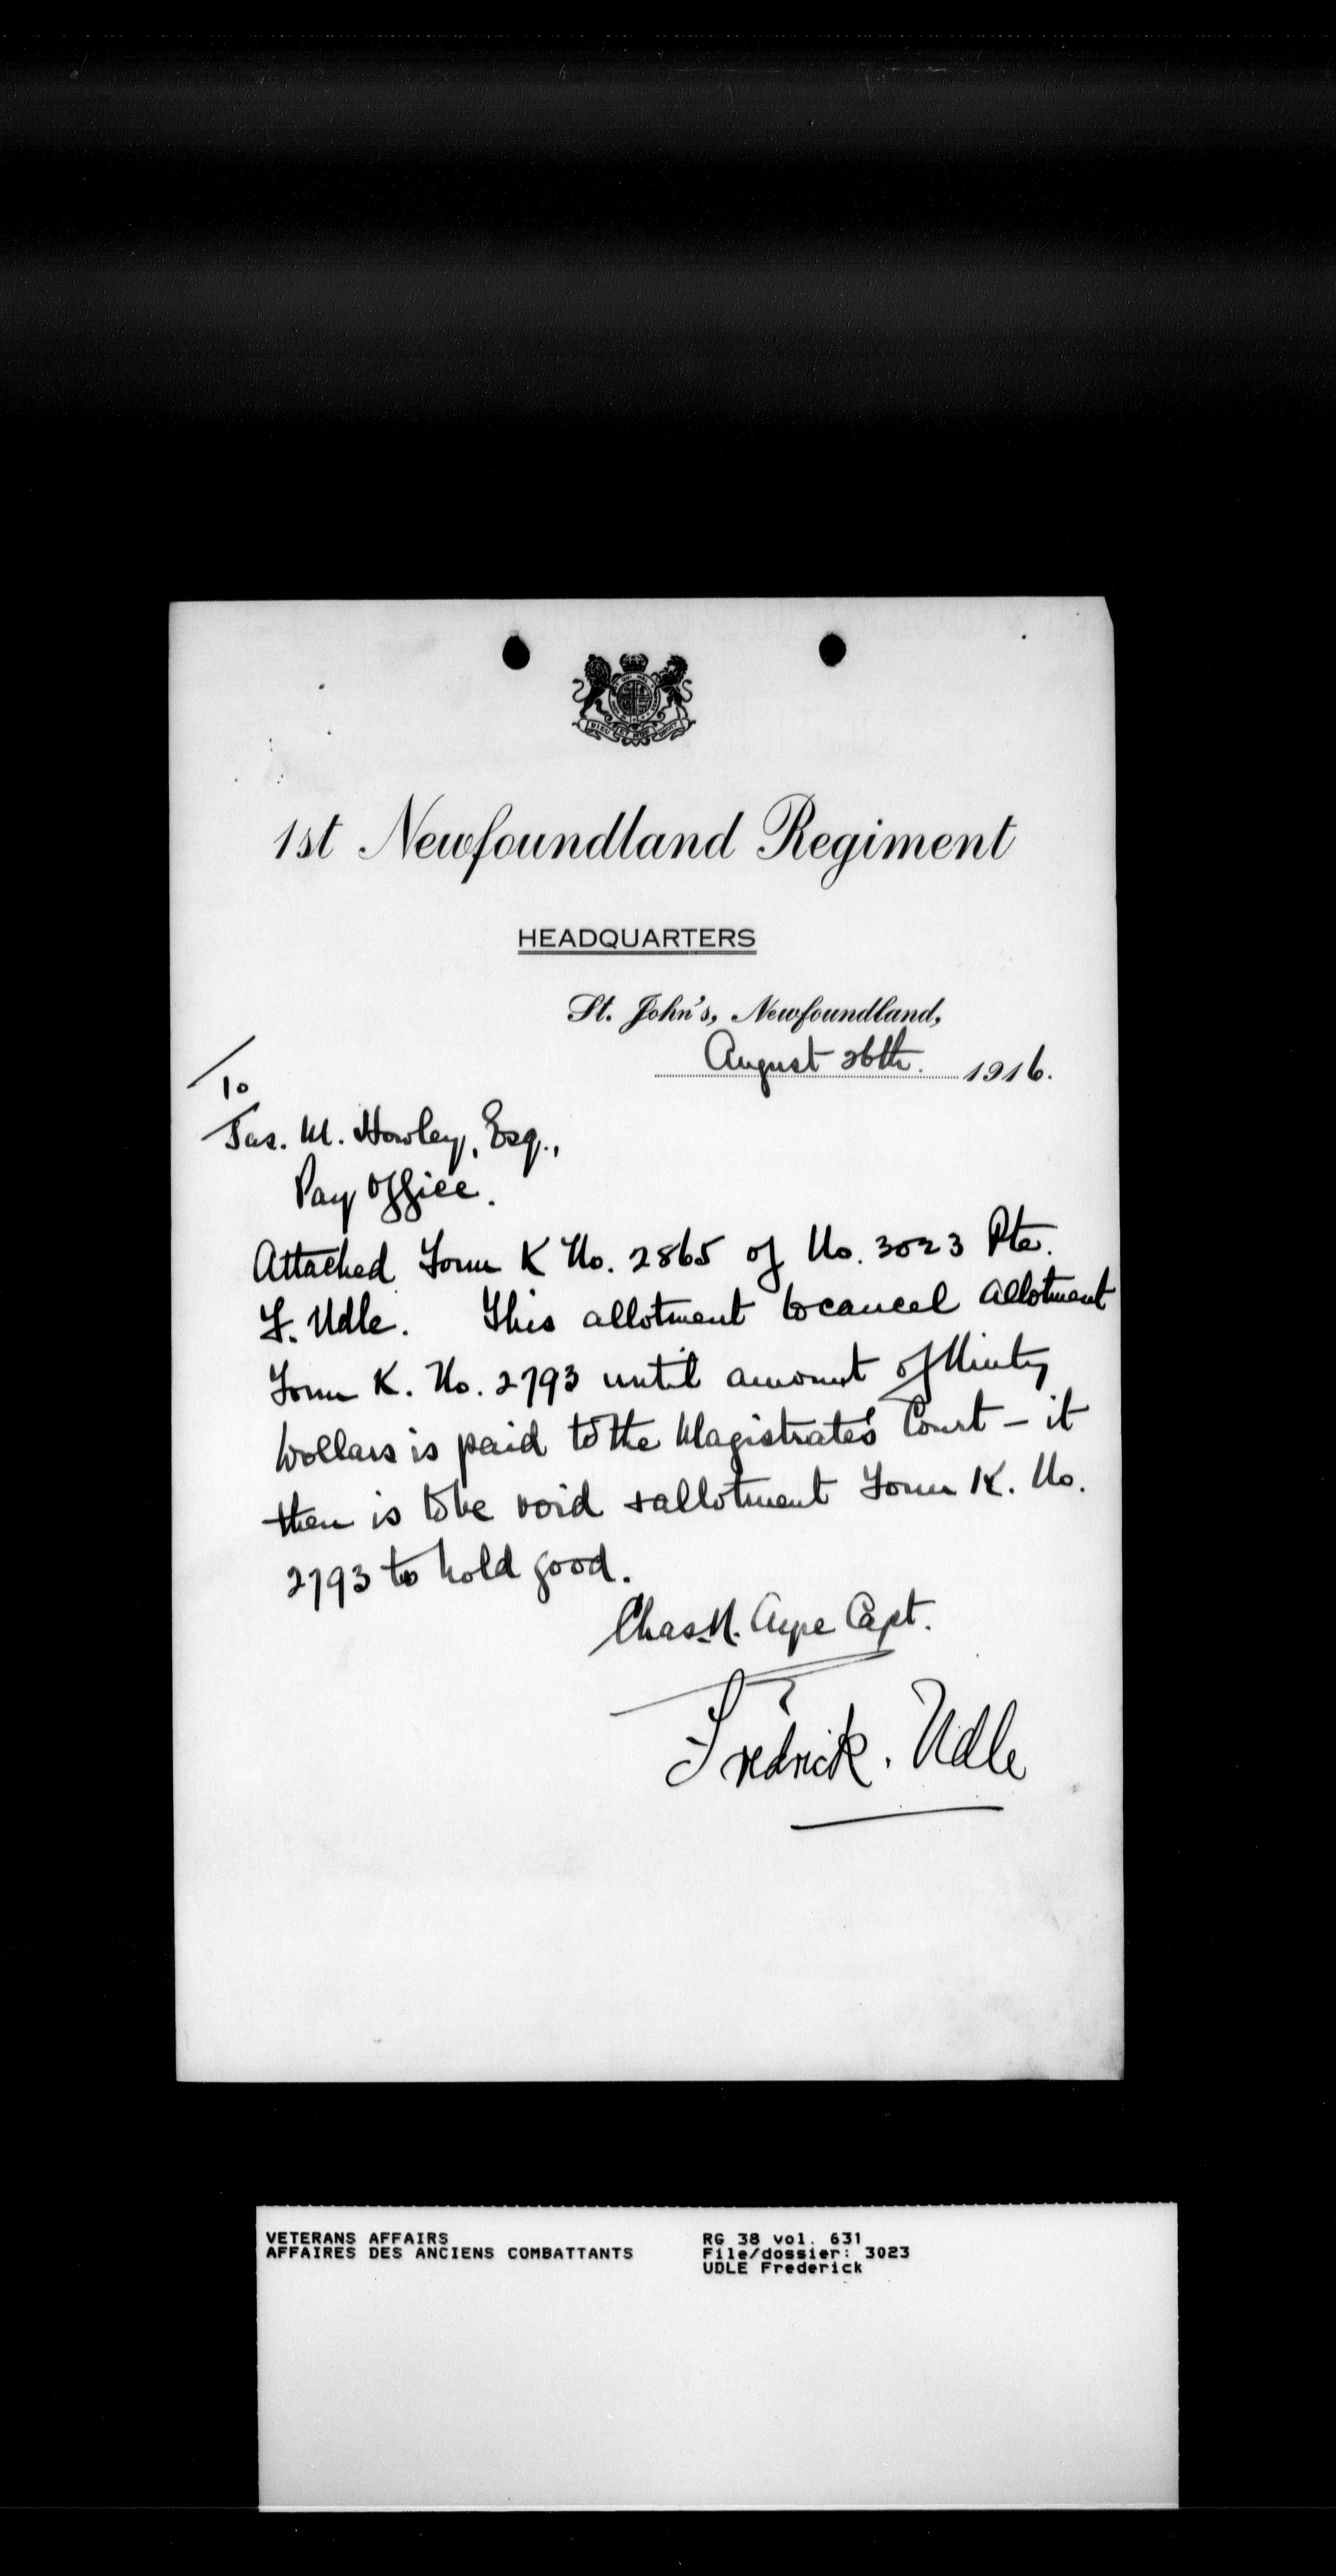 1st Newfoundland Regiment
HEADQUARTERS
St. John's, Newfoundland,
August 26th. 1916.
To
Jas. M. Howley, Esq.,
Pay Office.
Attached Form K No. 2865 of No. 3023 Pte.
F. Udle. This allotment to cancel allotment
Form K. No. 2793 until amount of Ninty
Dollars is paid to the Magistrate's Court - it
then is to be void & allotment Form K. No.
2793 to hold good.
Chas. H. Ayre Capt.
Fredrick. Udle
VETERANS AFFAIRS
AFFAIRES DES ANCIENS COMBATTANTS
RG 38 vol. 631
File/dossier: 3023
UDLE Frederick